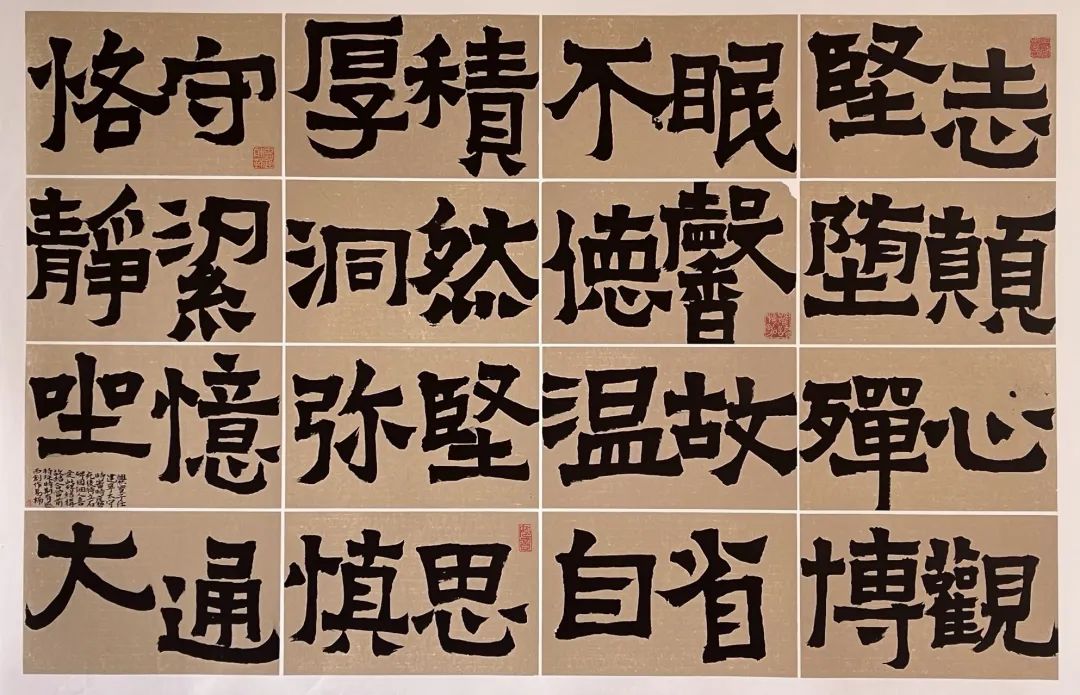 恪守 厚積 不眠 堅志
靜潔 洞然 徳馨 堕顛
坐憶 弥堅 温故 殫心
大通 慎思 自省 博觀